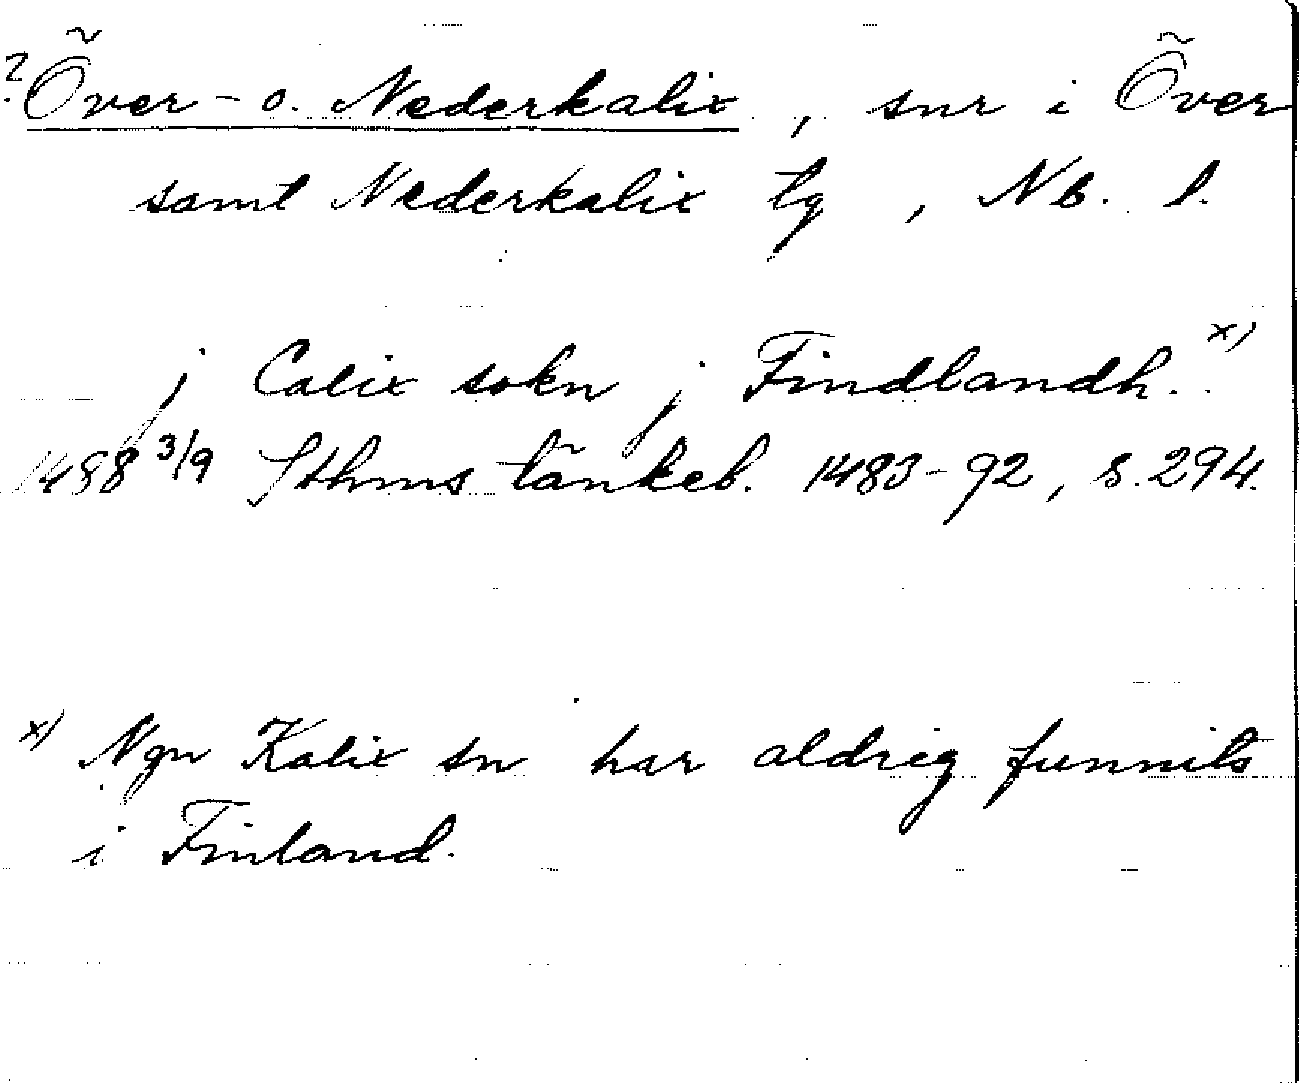 ? Över- o. Nederkalix, snr i Över
samt Nederkalix tg, Nb. l.
j Calix sokn j Findlandh. x)
1488 3/9 Sthms tänkeb. 1483-92, s. 294.
x) Ngn Kalix sn har aldrig funnits
i Finland.